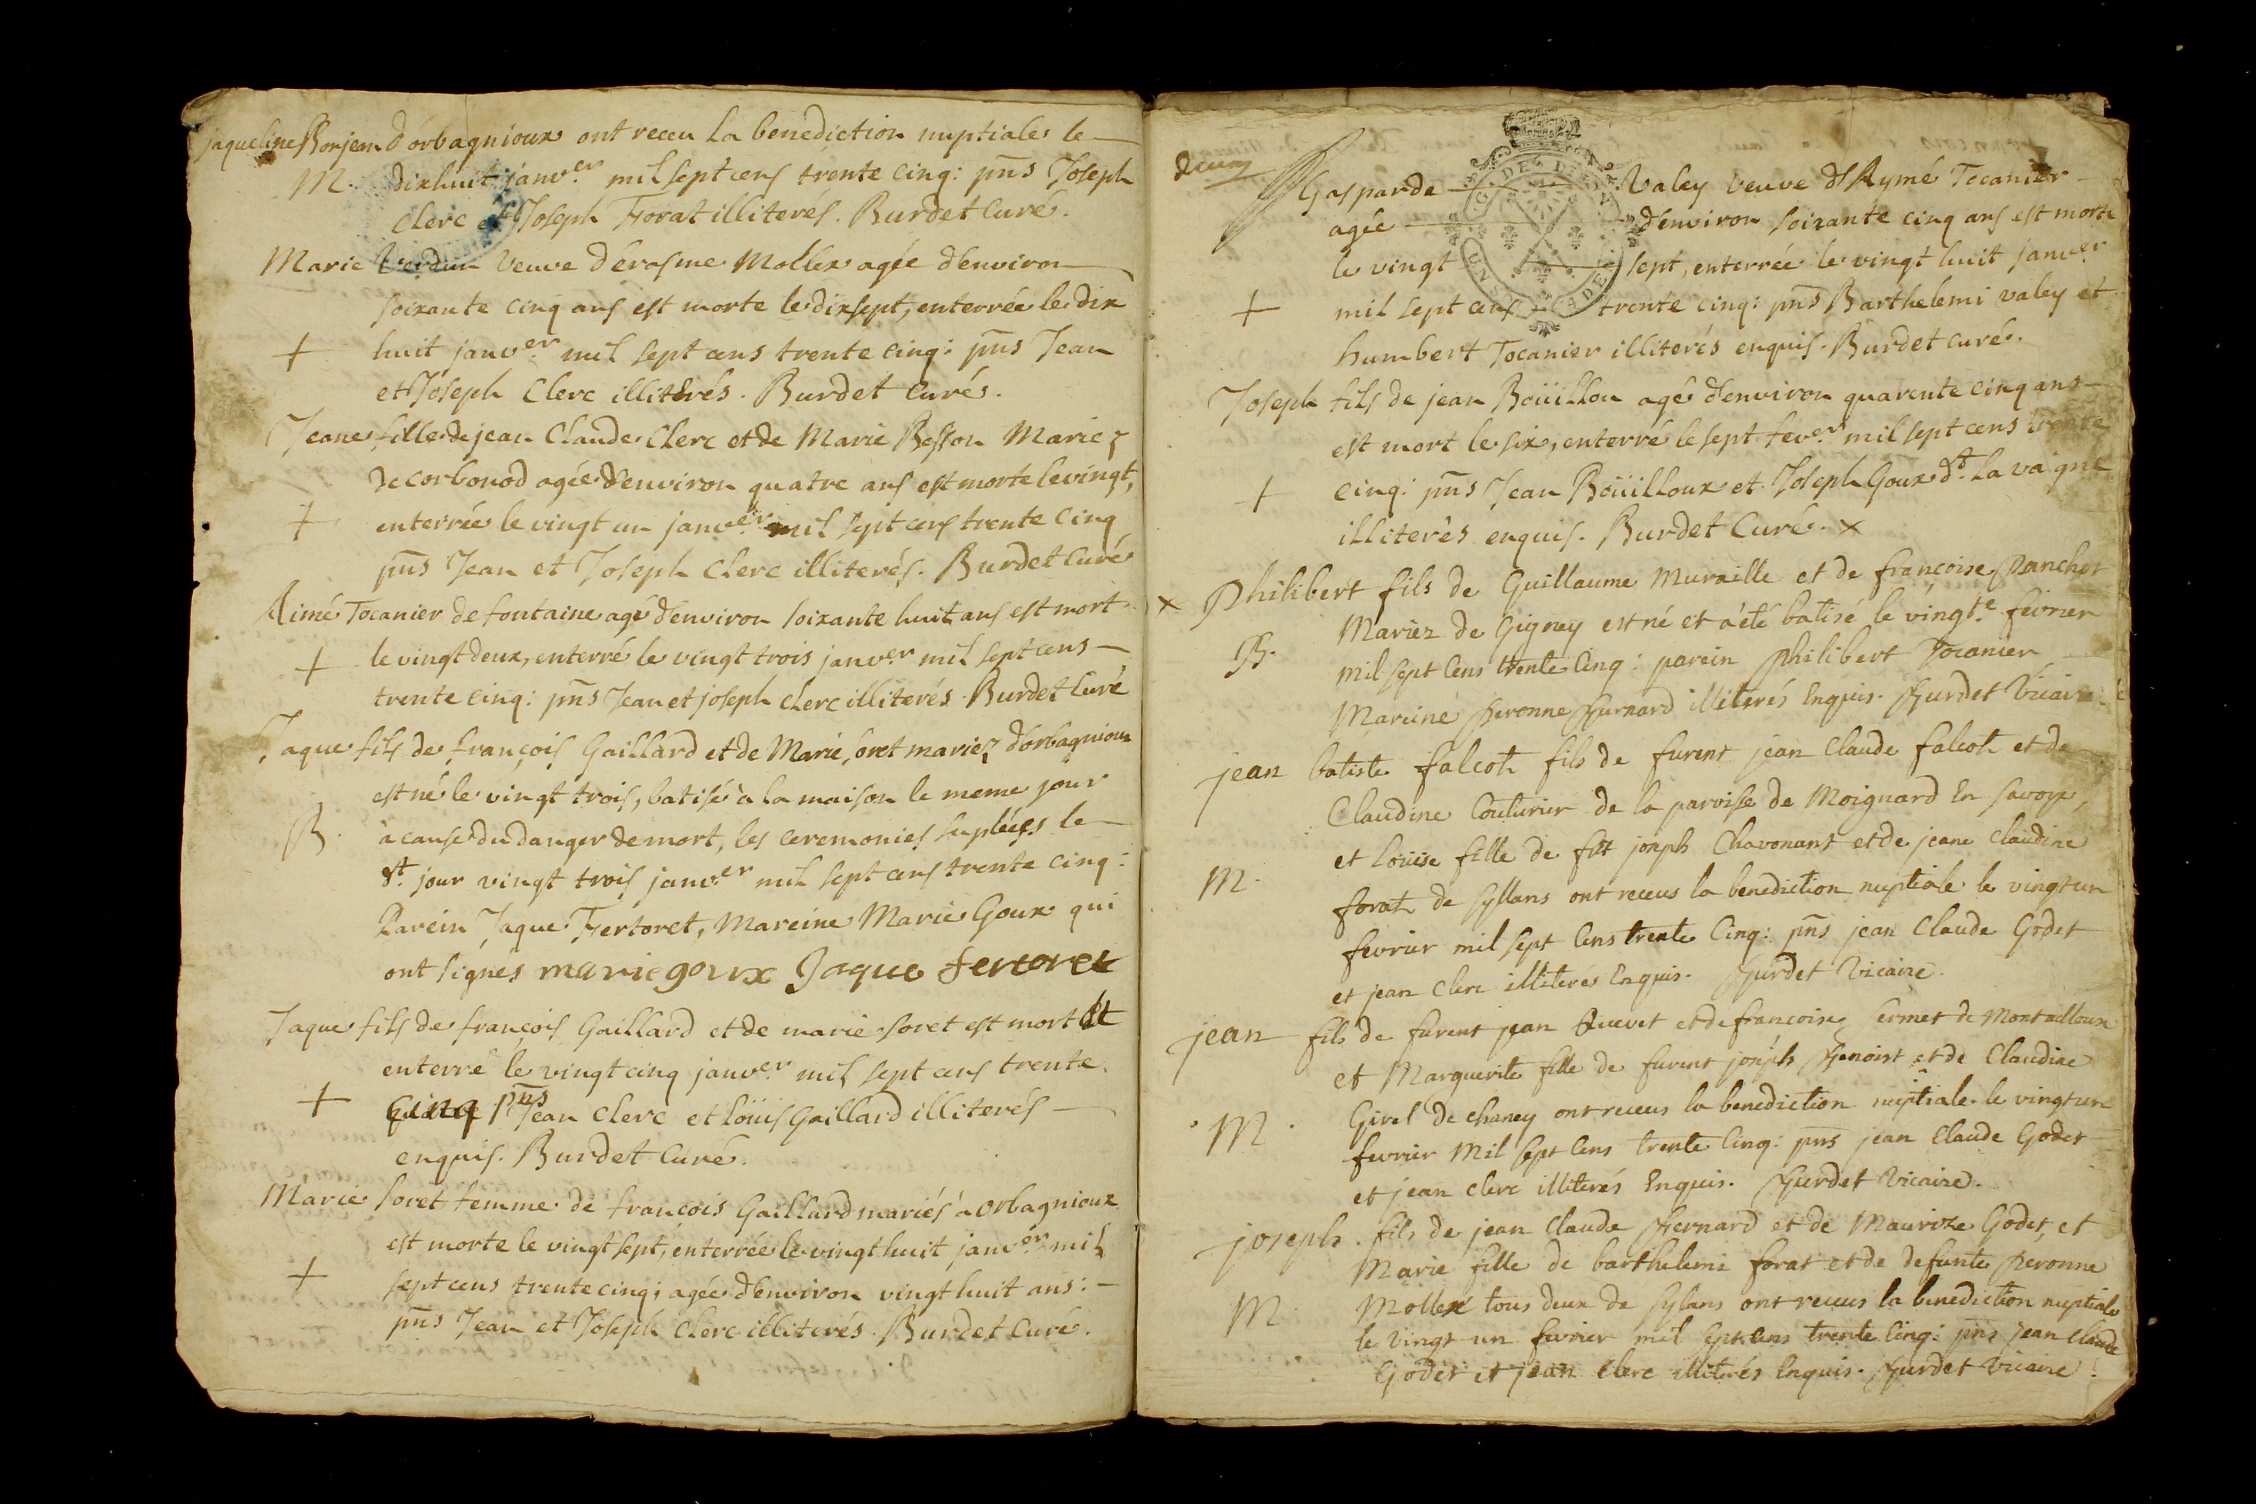 jaqueline Borjean d'orbagnioux ont receu la benediction nuptiale le
M. dixhuit janv.er mil sept cens trente cinq: pñs Joseph
Clerc et Joseph Forat illiterés. Burdet Curé.
Marie Verdun Veuve d'erasme Mollex agée d'environ
soixante cinq ans est morte le dixsept, enterrée le dix
+ huit janv.er mil sept cens trente cinq: pñs Jean
et Joseph Clerc illiterés. Burdet Curé.
Jeane fille de jean Claude Clerc et de Marie Besson Mariez
de corbonod agée d'environ quatre ans est morte le vingt,
+ enterrée le vingt un janv.er mil sept cens trente cinq
pñs Jean et Joseph Clerc illiterés. Burdet Curé
Aimé Tocanier de fontaine agé d'environ soixante huit ans est mort
+ le vingt deux, enterré le vingt trois janv.er mil sept cens
trente cinq: pñs Jean et joseph clerc illiterés. Burdet Curé
Jaque fils de françois Gaillard et de Marie soret mariez d'orbagnioux
est né le vingt trois, batisé à la maison le meme jour
B. à cause du danger de mort, les ceremonies suplées le
dt. jour vingt trois janv.er mil sept cens trente cinq:
Parein Jaque Fertoret, Mareine Marie Goux qui
ont signés marie goux Jaque fertoret
Jaque fils de françois Gaillard et de marie soret est mort et
enterré le vingt cinq janv.er mil sept cens trente
+ cinq pñs Jean clerc et Loüis Gaillard illiterés
enquis. Burdet Curé.
Marie soret femme de françois Gaillard mariés à orbagnioux
est morte le vingt sept, enterrée le vingt huit janv.er mil
+ sept cens trente cinq; agée d'environ vingt huit ans:
pñs Jean et Joseph Clerc illiterés. Burdet Curé.
Gasparde Valey veuve d'Aymé Tocanier
agée d'environ soixante cinq ans est morte
le vingt sept, enterrée le vingt huit janv.er
+ mil sept cens trente cinq: pñs Barthelemi valey et
humbert Tocanier illiterés enquis. Burdet curé.
Joseph fils de jean Boüillou agé d'environ quarente cinq ans
est mort le six, enterré le sept fev.er mil sept cens trente
+ cinq: pñs Jean Boüilloux et Joseph Goux dt. La vaigne
illiterés enquis. Burdet Curé. x
x Philibert fils de Guillaume Muraille et de françoise Panchot
Mariez de Gignay est né et a été batisé le vingt.e février
B. mil sept cens trente cinq: parein Philibert Tocanier
Mareine Peronne Burnard illiterés Enquis. Burdet Vicaire
jean batiste falcoh fils de furent jean Claude falcoh et de
Claudine Couturier de la paroisse de Moignard En Savoye,
et Loüise fille de fût joseph Chavonant et de jeane Claudine
M. forat de syllans ont receus la benediction nuptiale le vingt un
fevrier mil sept Cens trente Cinq: pñs jean Claude Godet
et jean Clerc illiterés Enquis. Burdet Vicaire.
jean fils de furent jean Quevet et de francoise Sermet de Montailloux
et Marguerite fille de furent joseph Benoist et de Claudine
M. Girel de chaney ont receus la benediction nuptiale le vingt un
fevrier Mil sept Cens trente Cinq: pñs jean Claude Godet
et jean clerc illiterés Enquis. Burdet Vicaire.
joseph fils de jean Claude Bernard et de Maurize Godet, et
Marie fille de barthelemi forat et de defunte Peronne
M. Mollex tous deux de sylans ont receus la benediction nuptiale
le vingt un fevrier mil sept Cens trente Cinq: pñs jean Claude
Godet et jean Clerc illiterés Enquis. Burdet Vicaire.